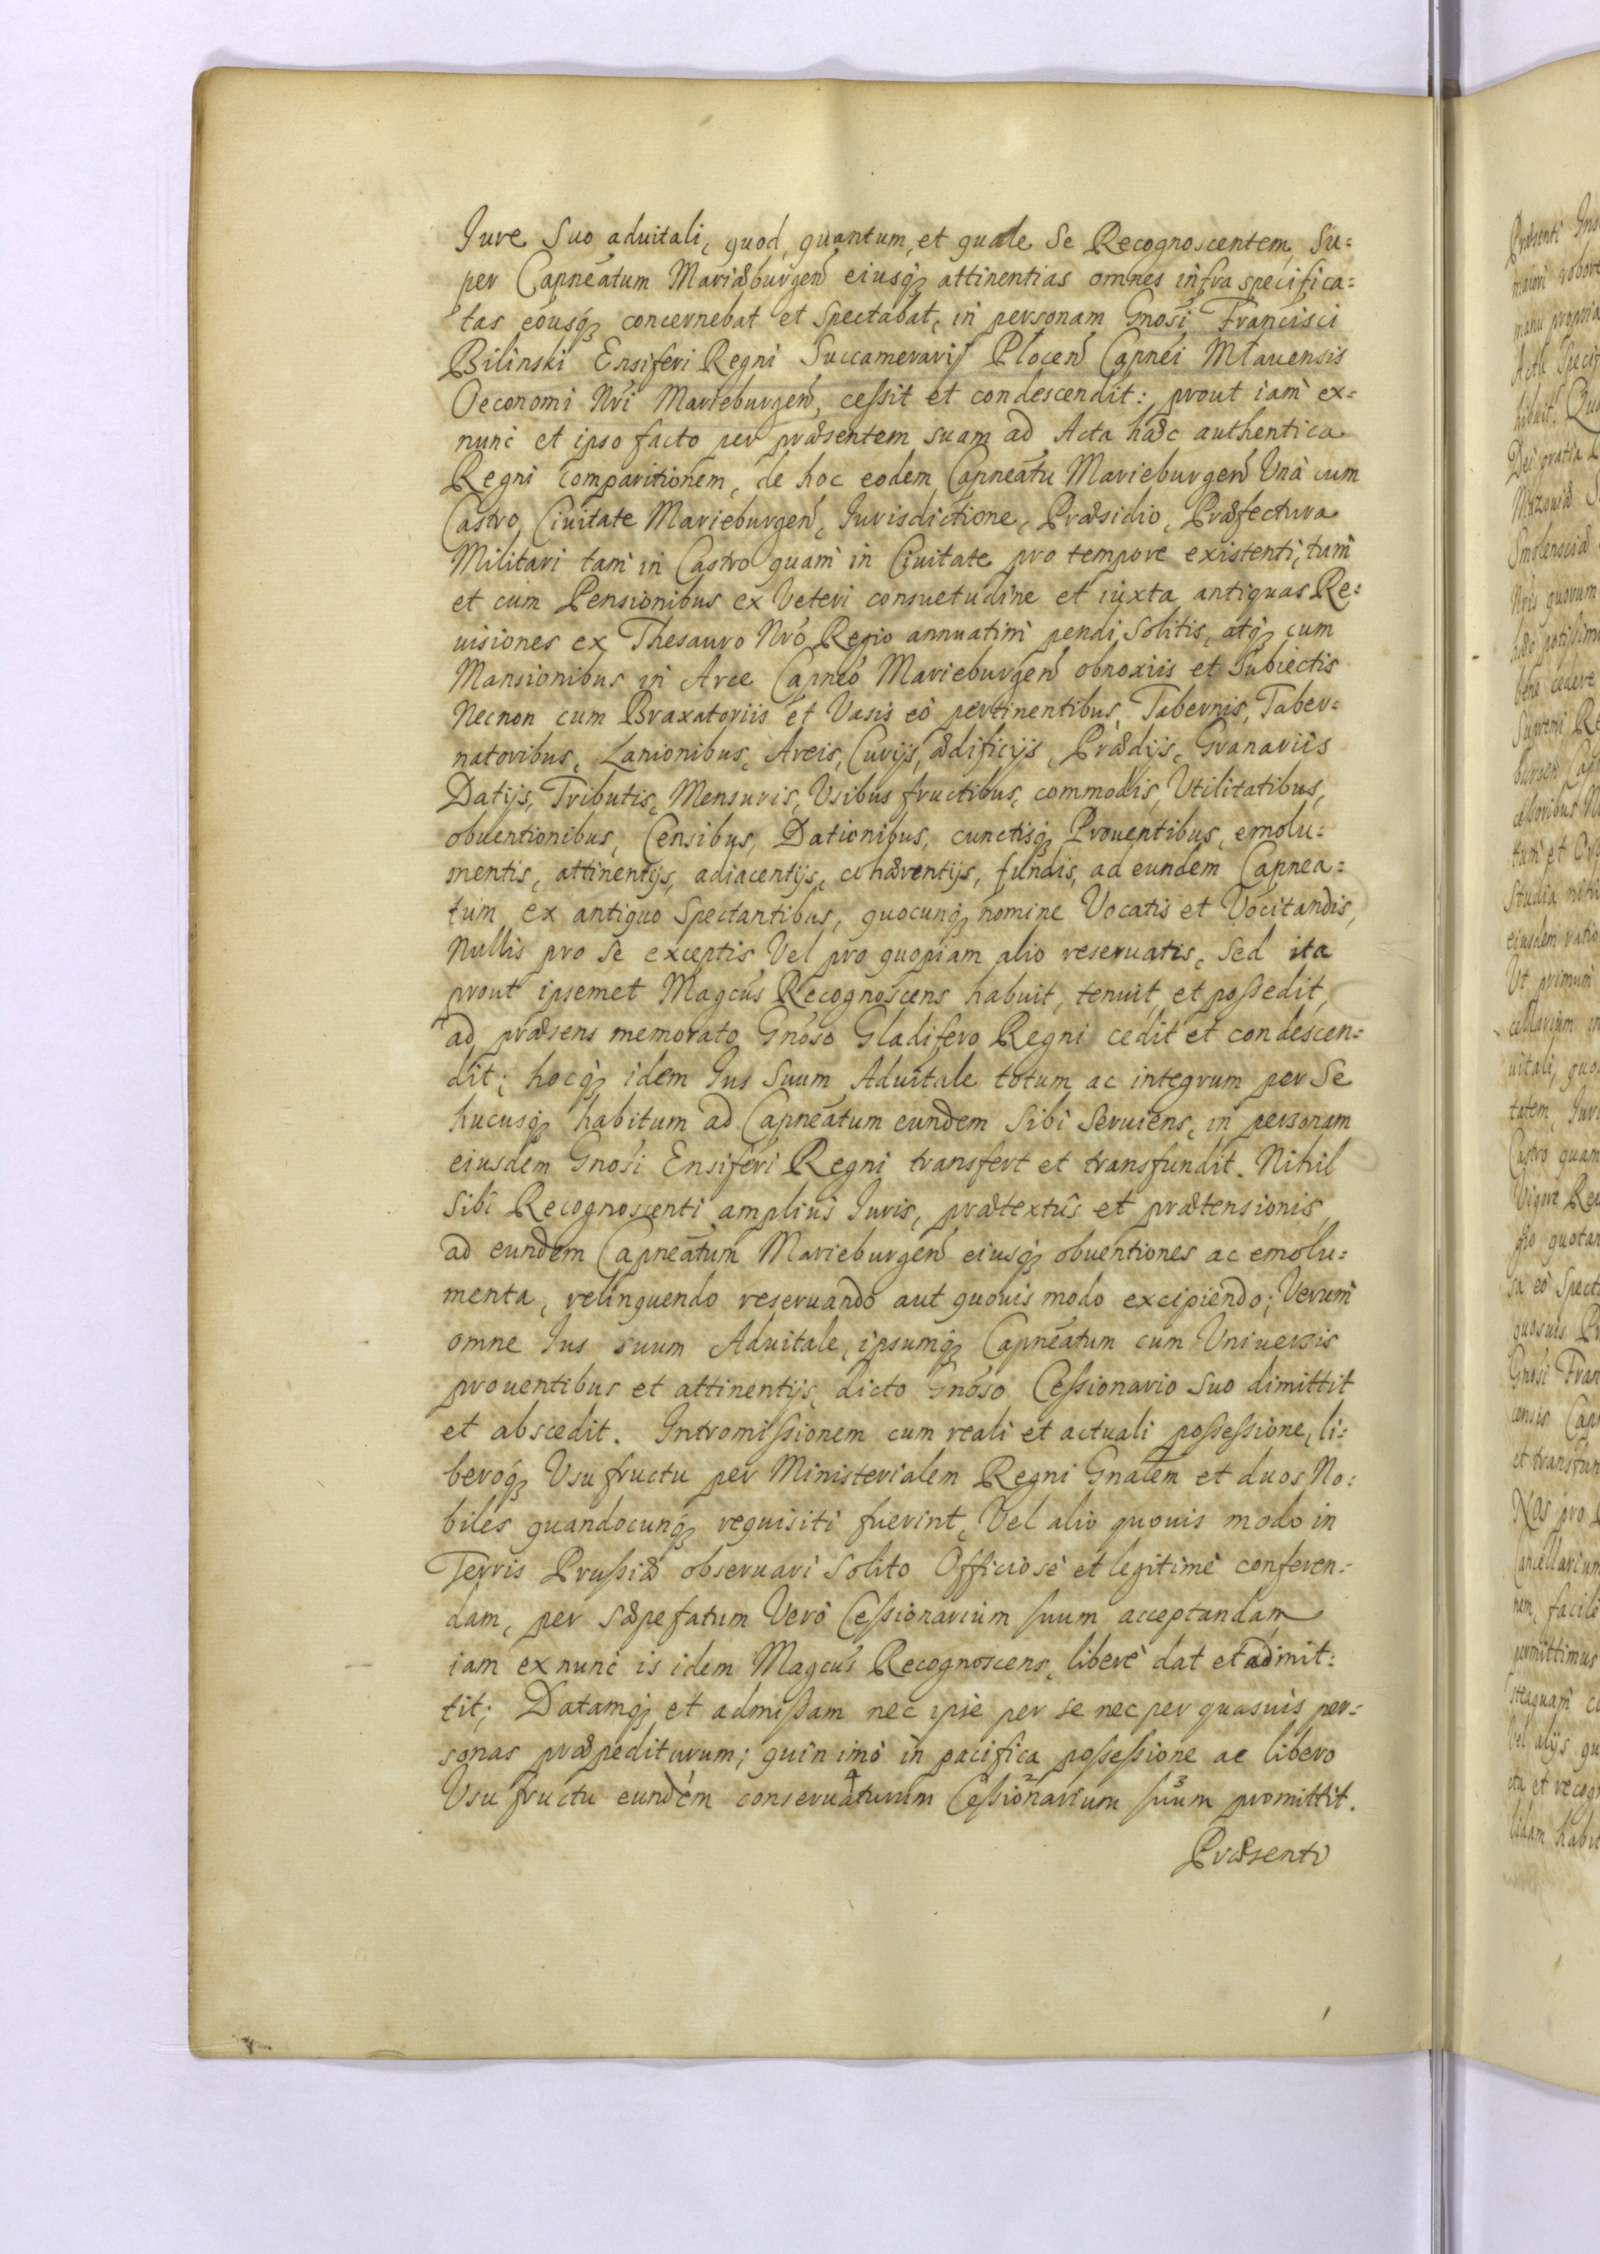 Jure Suo aduitali, quod, quantum, et quale Se Recognoscentem, Su=
per Capneatum Mariæburgen eiusq; attinentias omnes infra specifica=
tas eousq; concernebat et Spectabat, in personam Gnosi Francisci
Bilinski Ensiferi Regni Succamerarij Plocen Capnei Mlauensis
Oeconomi Nri Marieburgen, cessit et condescendit: prout iam ex=
nunc et ipso facto per præsentem suam ad Acta hæc authentica
Regni comparitionem, de hoc eodem Capneatu Marieburgen Unà cum
Castro, Ciuitate Marieburgen, Jurisdictione, Præsidio, Præfectura
Militari tam in Castro quam in Ciuitate pro tempore existenti, tum
et cum Pensionibus ex Veteri consuetudine et iuxta antiquas Re=
uisiones ex Thesauro Nro Regio annuatim pendi Solitis, atq; cum
Mansionibus in Arce Capneo Marieburgen obnoxiis et Subiectis
Necnon cum Braxatoriis et Vasis eò pertinentibus, Tabernis, Taber=
natoribus, Lanionibus, Areis, Curijs, ædificijs, Prædijs, Granariis
Datijs, Tributis, Mensuris, Usibus fructibus, commodis, Utilitatibus,
obuentionibus, Censibus, Dationibus, cunctisq; Prouentibus, emolu=
mentis, attinentijs, adiacentijs, cohærentijs, fundis, ad eundem Capnea=
tum ex antiquo Spectantibus, quocunq; nomine Vocatis et Vocitandis,
Nullis pro Se exceptis Vel pro quopiam alio reseruatis, Sed ita
prout ipsemet Magcus Recognoscens habuit, tenuit, et possedit,
ad præsens memorato Gnoso Gladifero Regni cedit et condescen=
dit; hocq; idem Jus Suum Aduitale totum ac integrum per Se
hucusq; habitum ad Capneatum eundem Sibi Seruiens, in personam
eiusdem Gnosi Ensiferi Regni transfert et transfundit. Nihil
Sibi Recognoscenti amplius Juris, prætextûs et prætensionis,
ad eundem Capneatum Marieburgen eiusq; obuentiones ac emolu=
menta, relinquendo reseruando aut quouis modo excipiendo; Verum
omne Jus suum Aduitale, ipsumq; Capneatum cum Uniuersis
prouentibus et attinentijs, dicto Gnoso Cessionario Suo dimittit
et abscedit. Intromissionem cum reali et actuali possessione, li=
beroq; Usufructu per Ministerialem Regni Gnalem et duos No=
biles quandocunq; requisiti fuerint, Vel alio quouis modo in
Terris Prussiæ obseruari Solito Officiosè et legitimè conferen=
dam, per Sæpefatum Verò Cessionarium suum acceptandam
iam exnunc is idem Magcus Recognoscens, liberè dat et admit=
tit; Datamq; et admissam nec ipse per se nec per quasuis per=
sonas præpediturum; quin imò in pacifica possessione ac libero
Usufructu eundem conseruaturum Cessionarium suum promittit.
Præsenti